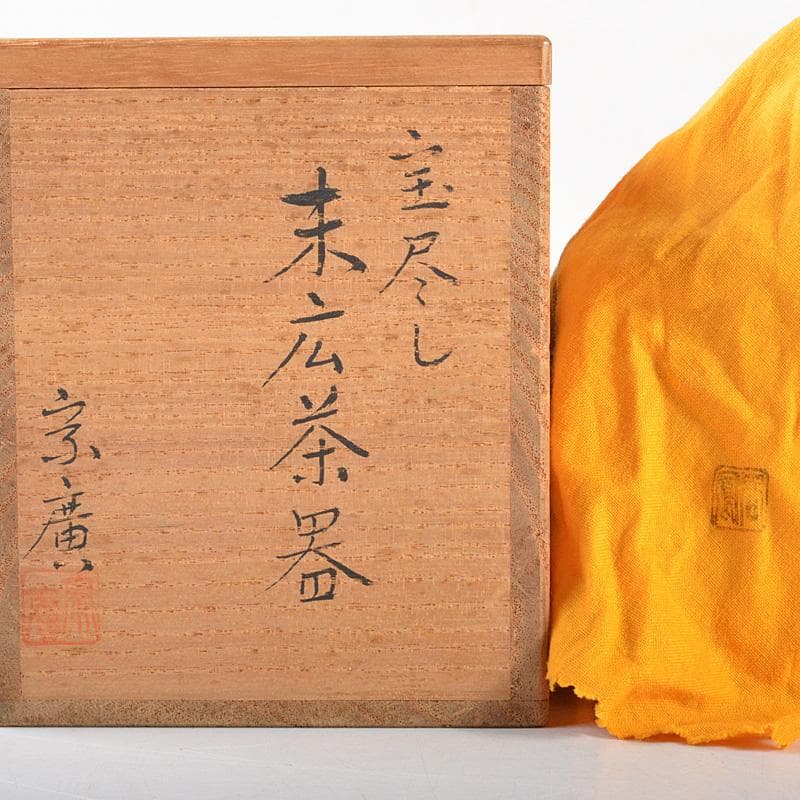 宝尽し
末広茶器
宗廣